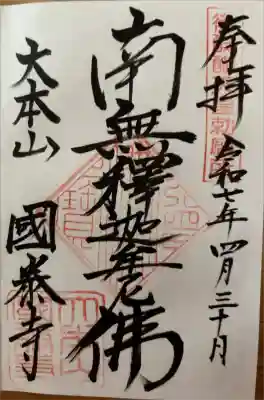 奉拝 令和七年 四月三十日
南無釋迦牟尼佛
大本山 國泰寺